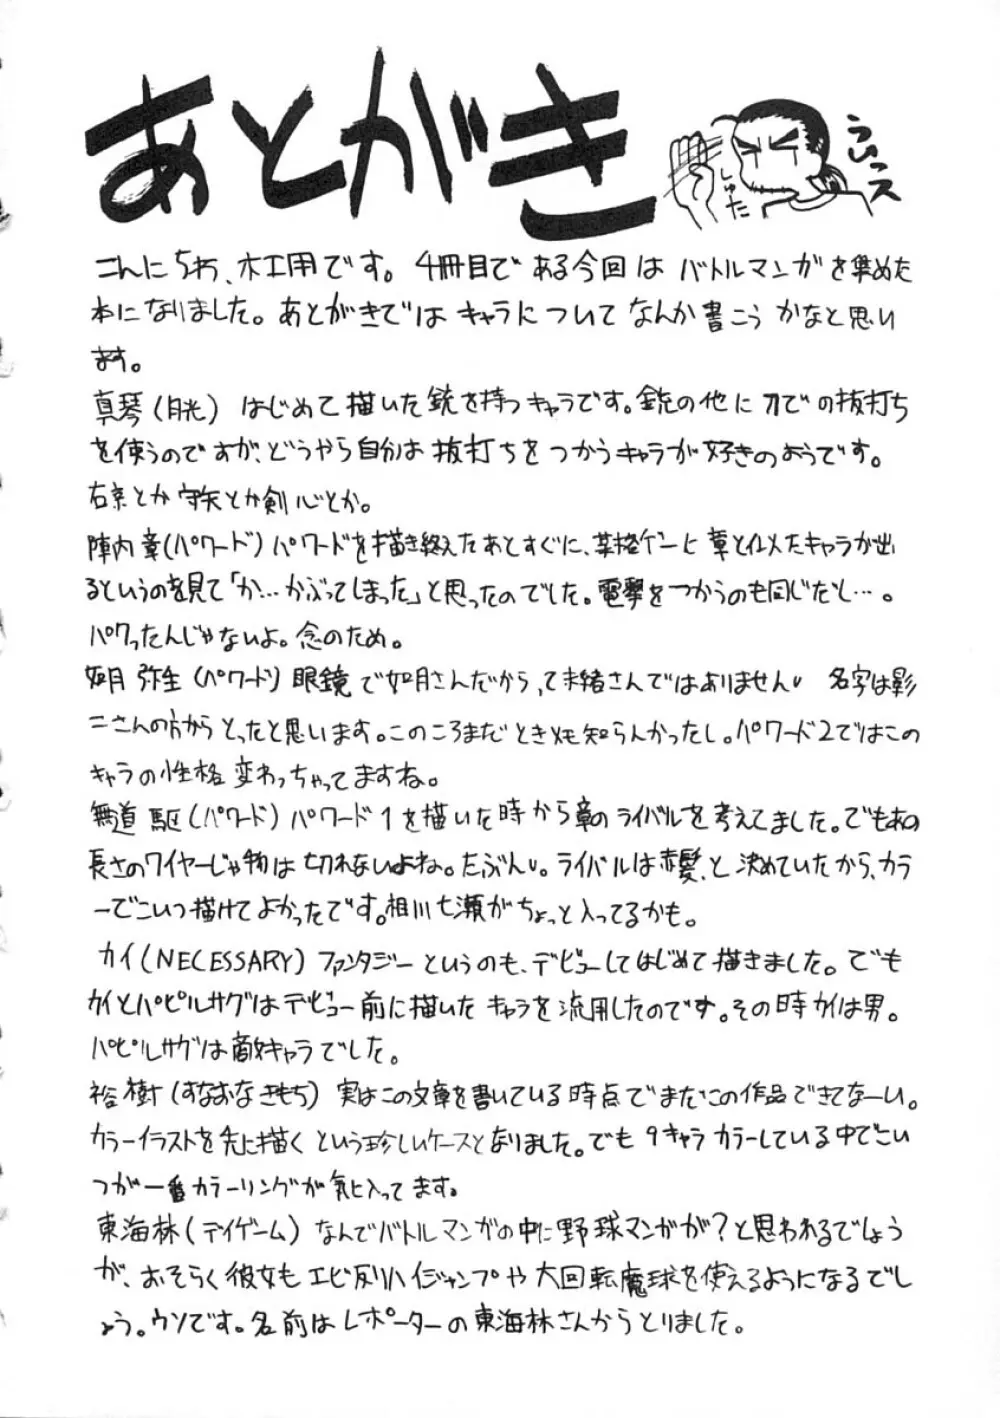 あとがき
ういっス
しゅた
こんにちわ、木工用です。4冊目である今回はバトルマンガを集めた
本になりました。あとがきではキャラについてなんか書こうかなと思い
ます。
真琴(月光) はじめて描いた銃を持つキャラです。銃の他に刀での抜打ち
を使うのですが、どうやら自分は抜打ちをつかうキャラが好きのようです。
右京とか守矢とか剣心とか。
陣内 章(パワード) パワードを描き終えたあとすぐに、某格ゲーに章と似たキャラが出
るというのを見て「か…かぶってしまった」と思ったのでした。電撃をつかうのも同じだし…。
パクったんじゃないよ。念のため。
如月 弥生(パワード) 眼鏡で如月さんだから、て未緒さんではありません 名字は影
二さんの方からとったと思います。このころまだときメモ知らんかったし。パワード2ではこの
キャラの性格変わっちゃってますね。
無道 駆(パワード) パワード1を描いた時から章のライバルを考えてました。でもあの
長さのワイヤーじゃ物は切れないよね。たぶん。ライバルは赤髪、と決めていたから、カラ
ーでこいつ描けてよかったです。相川七瀬がちょっと入ってるかも。
カイ(NECESSARY) ファンタジーというのも、デビューしてはじめて描きました。でも
カイとパピルサグはデビュー前に描いたキャラを流用したのです。その時カイは男。
パピルサグは敵キャラでした。
裕樹(すなおなきもち) 実はこの文章を書いている時点でまだこの作品できてなーい。
カラーイラストを先に描くという珍しいケースとなりました。でも9キャラカラーしている中でこい
つが一番カラーリングが気に入ってます。
東海林(デイゲーム) なんでバトルマンガの中に野球マンガが?と思われるでしょう
が、おそらく彼女もエビ反りハイジャンプや大回転魔球を使えるようになるでし
ょう。ウソです。名前はレポーターの東海林さんからとりました。